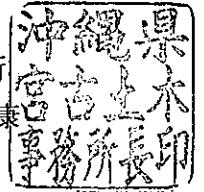 沖縄県
宮古土木
事務所長印